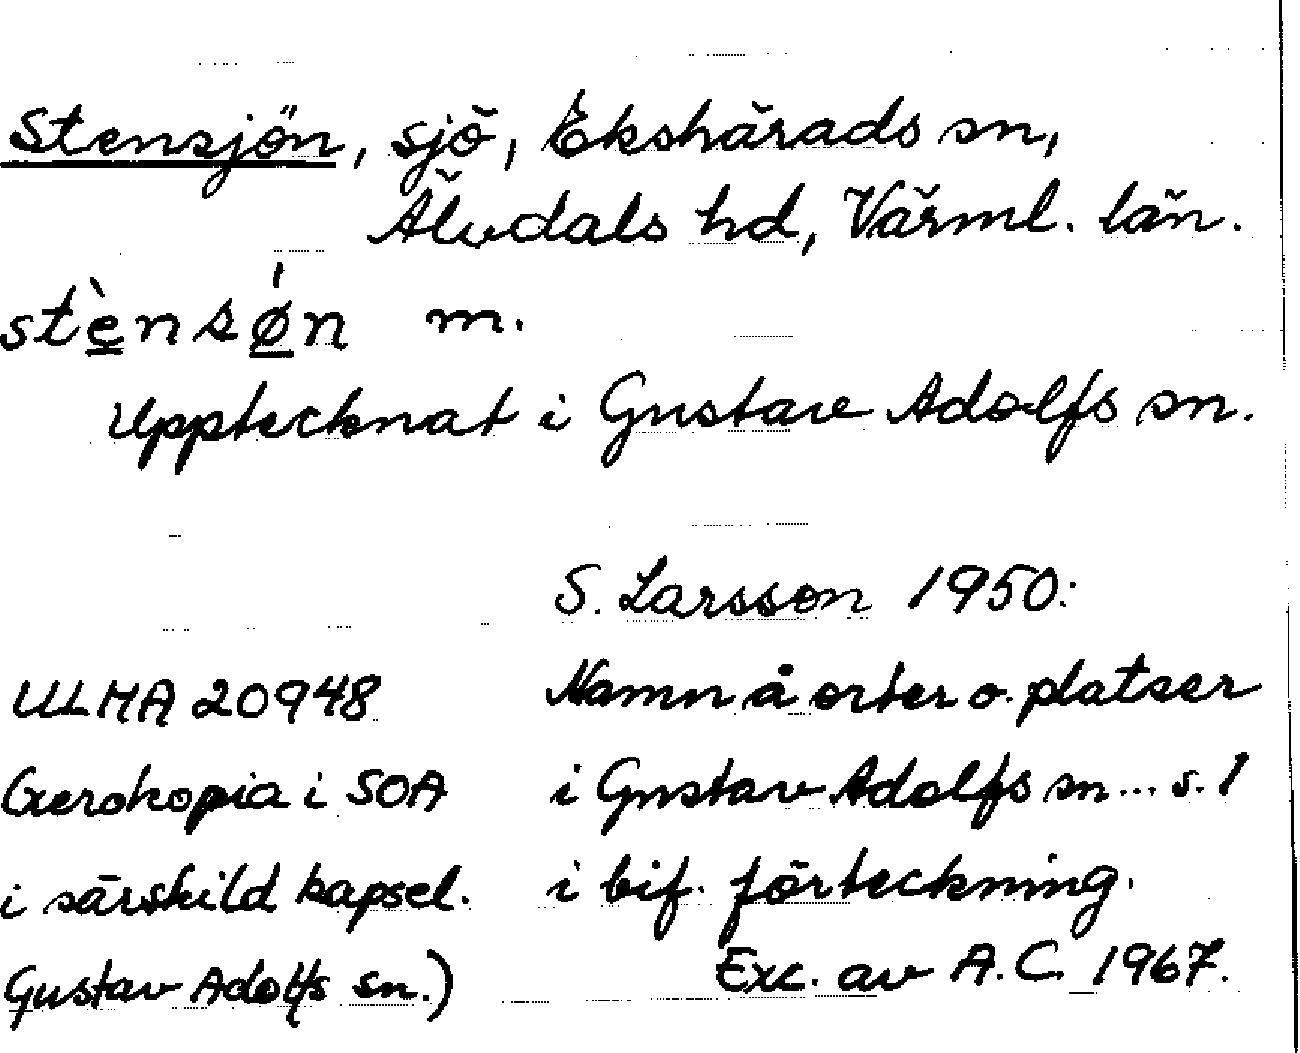 Stensjön, sjö, Ekshärads sn,
Älvdals hd, Värml. län.
stènsø̀n m.
Upptecknat i Gustav Adolfs sn.
S. Larsson 1950:
ULMA 20948 Namn å orter o. platser
(Xerokopia i SOA i Gustav Adolfs sn... s. 1
i särskild kapsel. i bif. förteckning.
Gustav Adolfs sn.) Exc. av A.C. 1967.